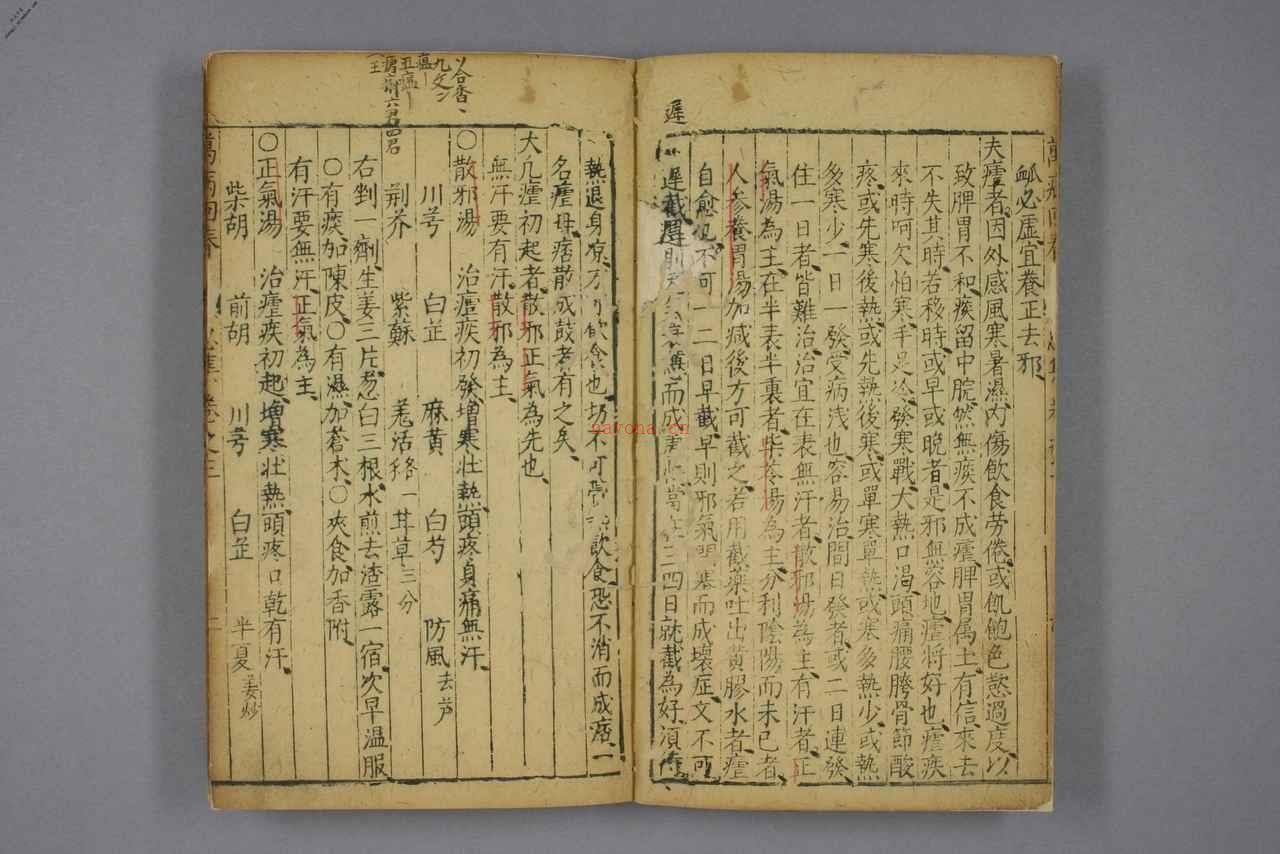 衇必虛宜養正去邪
夫瘧者因外感風寒暑濕内傷飲食劳倦或飢飽色慾過度以
致脾胃不和痰留中脘然無痰不成瘧脾胃属土有信來去
不失其時若移時或早或晚者是邪無容地瘧將好也瘧疾
來時呵欠怕寒手足冷發寒戰大熱口渴頭痛腰胯骨節酸
疼或先寒後熱或先熱後寒或單寒單熱或寒多熱少或熱
多寒少一日一發受病浅也容易治間日發者或二日連發
住一日者皆難治治宜在表無汗者散邪湯為主有汗者正
氣湯為主在半表半裏者柴苓湯為主分利陰陽而未已者
人参養胃湯加减後方可截之若用截藥吐出黄膠水者瘧
自愈也不可一二日早截早則邪氣閉塞而成壞症文不可
遲截遲則而成三四日就截為好須待
遲
熱退身凉方可飲食也切不可帶熱飲食恐不消而成痞一
名瘧母痞散成鼓者有之矣
大凢瘧初起者散邪正氣為先也
無汗要有汗散邪為主
〇散邪湯 治瘧疾初發增寒壮熱頭疼身痛無汗
川芎 白芷 麻黄 白芍 防風去芦
荆芥 紫蘇 羌活各一 耳草三分
右剉一劑生姜三片葱白三根水煎去渣露一宿次早温服
〇有痰加陳皮〇有濕加蒼朮〇夾食加香附
有汗要無汗正氣為主
〇正氣湯 治瘧疾初起增寒壮熱頭疼口乾有汗
柴胡 前胡 川芎 白芷 半夏姜炒
萬病回春 卷之三